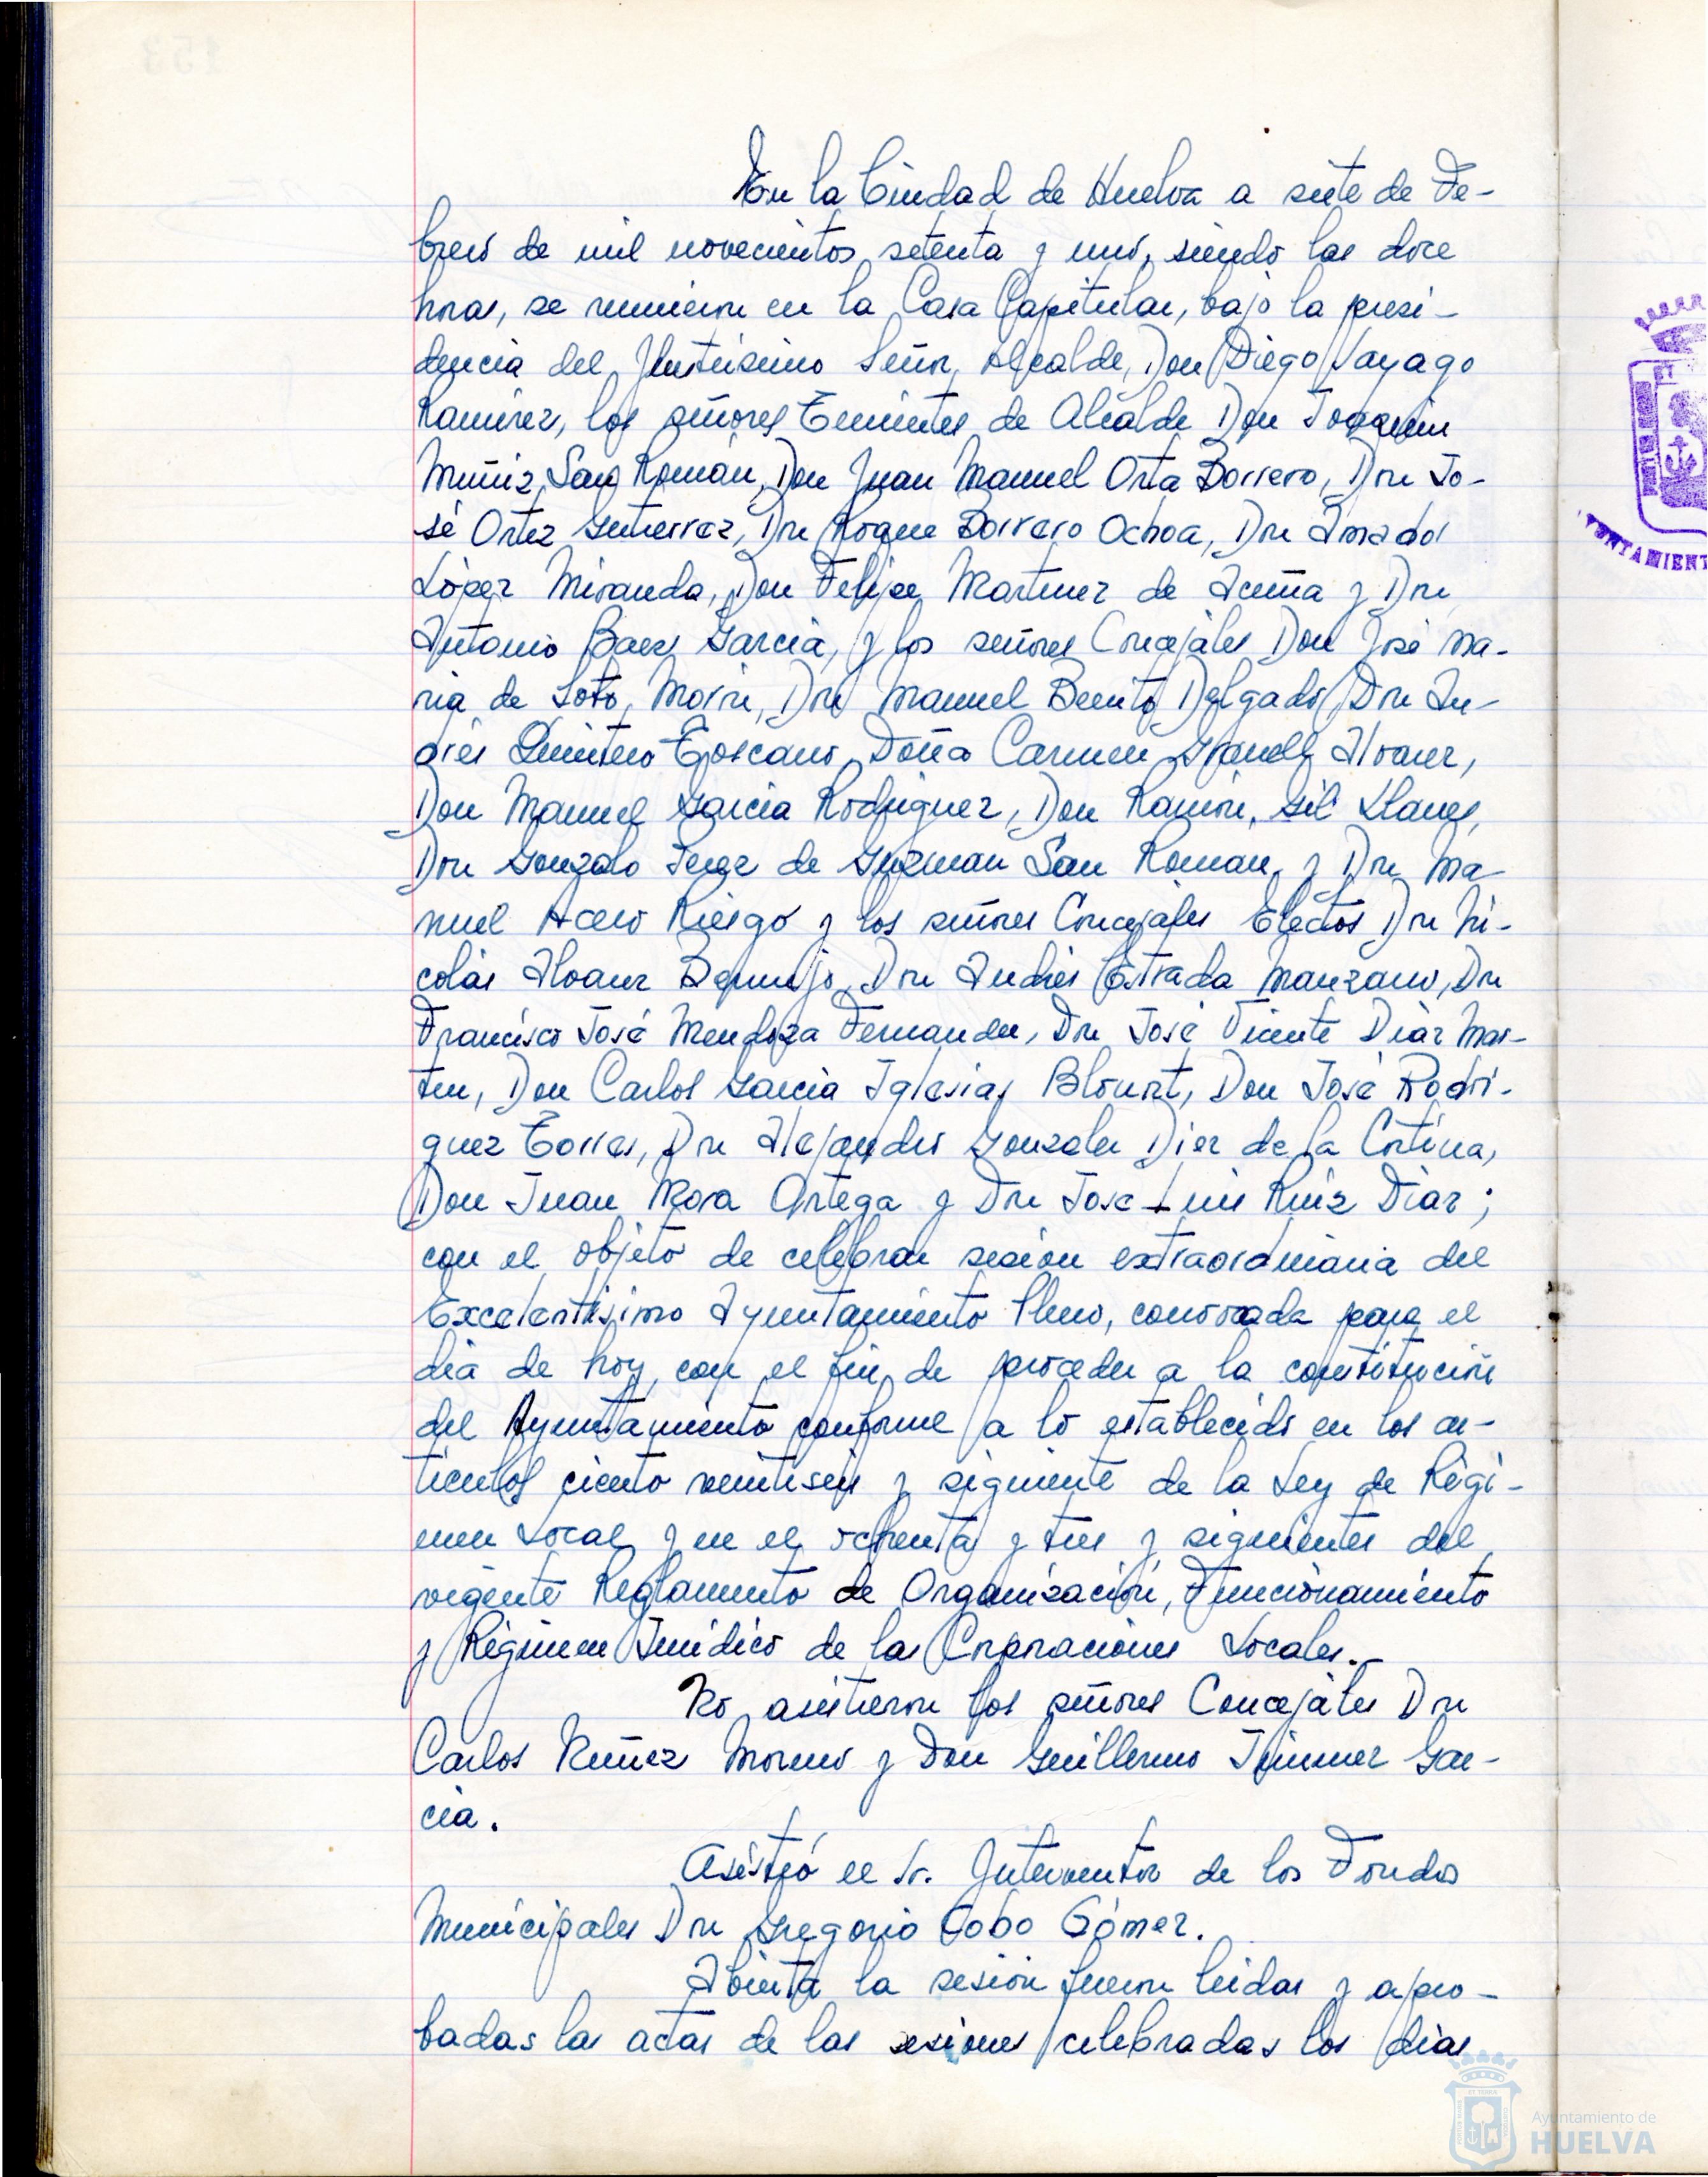 En la Ciudad de Huelva a siete de Fe-
brero de mil novecientos setenta y uno, siendo las doce
horas, se reunieron en la Casa Capitular, bajo la presi-
dencia del Ilustrísimo Señor Alcalde, Don Diego Sayago
Ramírez, los señores Tenientes de Alcalde Don Joaquin
Muñiz San Román, Don Juan Manuel Orta Borrero, Don Jo-
sé Ortiz Gutierrez, Don Roque Borrero Ochoa, Don Amador
López Miranda, Don Felipe Martinez de Acuña y Don
Antonio Baez García, y los señores Concejales Don José Ma-
ria de Soto Morón, Don Manuel Benito Delgado, Don An-
drés Quintero Toscano, Doña Carmen Granell Alvarez,
Don Manuel García Rodriguez, Don Ramón Gil Llanes,
Don Gonzalo Perez de Guzman San Roman, y Don Ma-
nuel Acero Riesgo y los señores Concejales Electos Don Ni-
colás Alvarez Bermejo, Don Andrés Estrada Manzano, Don
Francisco José Mendoza Fernandez, Don José Vicente Díaz Mar-
tin, Don Carlos García Iglesias Blount, Don José Rodri-
guez Torres, Don Alejandro Gonzalez Diez de la Cortina,
Don Juan Mora Ortega y Don José Luis Ruiz Diaz;
con el objeto de celebrar sesión extraordinaria del
Excelentísimo Ayuntamiento Pleno, convocada para el
dia de hoy, con el fin de proceder a la constitución
del Ayuntamiento conforme a lo establecido en los ar-
ticulos ciento veintiseis y siguiente de la Ley de Régi-
men Local y en el ochenta y tres y siguientes del
vigente Reglamento de Organización, Funcionamiento
y Régimen Jurídico de las Corporaciones Locales.-
No asistieron los señores Concejales Don
Carlos Nuñez Moreno y Don Guillermo Jimenez Gar-
cia.
Asistió el Sr. Interventor de los Fondos
Municipales Don Gregorio Cobo Gómez.
Abierta la sesión fueron leidas y apro-
badas las actas de las sesiones celebradas los dias
Ayuntamiento de
HUELVA